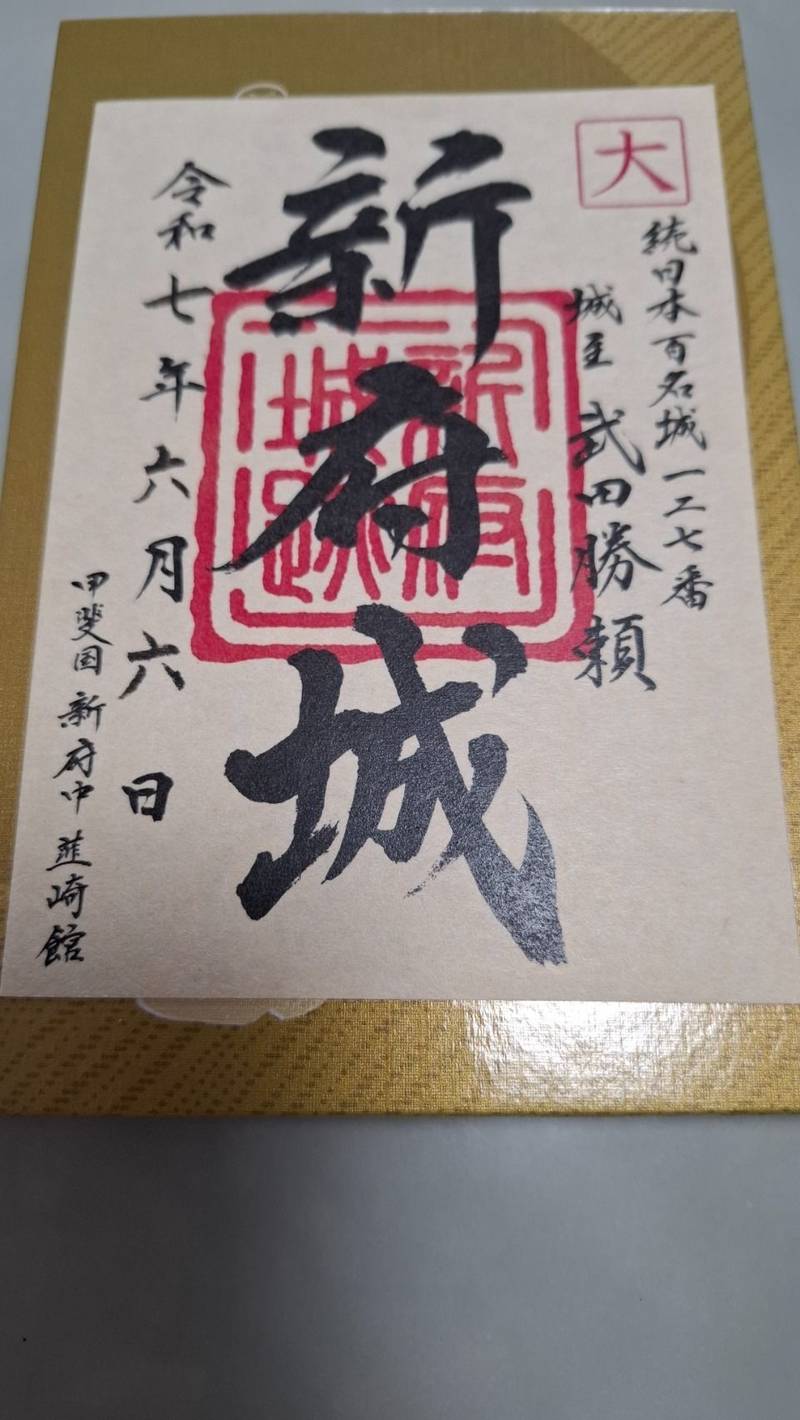 大
続日本百名城一二七番
城主 武田勝頼
新府城
新府
城跡
令和七年六月六日
甲斐国 新府中 韮崎館